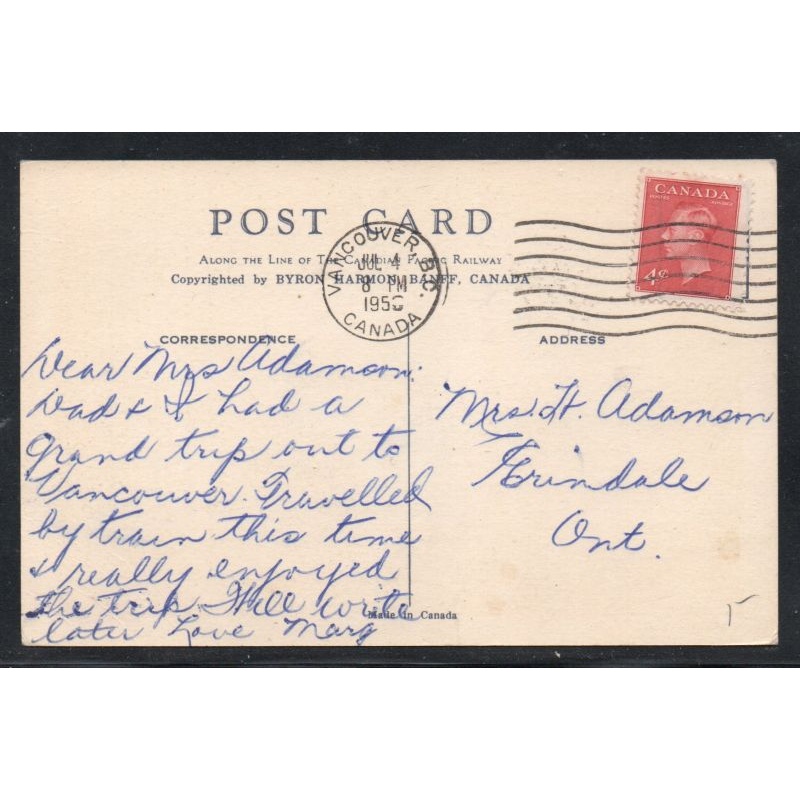 POST CARD
ALONG THE LINE OF THE CANADIAN PACIFIC RAILWAY
Copyrighted by BYRON HARMON, BANFF, CANADA
VANCOUVER, B.C.
JUL 4
8 PM
1950
CANADA
CANADA
4¢
CORRESPONDENCE
Dear Mrs Adamson:
Dad & I had a
grand trip out to
Vancouver. Travelled
by train this time
& really enjoyed
the trip. Will write
later Love Marg
ADDRESS
Mrs. H. Adamson
Erindale
Ont.
Made in Canada